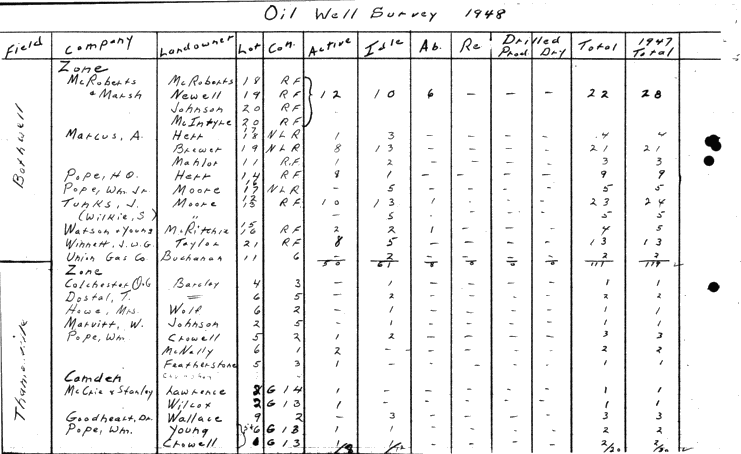 Oil Well Survey 1948
Field Company Landowner Lot Con. Active Idle Ab. Re Drilled Prod. Dry Total 1947 Total
Bothwell
Zone
McRoberts McRoberts 18 RF
& Marsh Newell 19 RF 12 10 6 - - - 22 28
Johnson 20 RF
McIntyre 20 RF
Marcus, A. Herr 17 18 NLR 1 3 - - - - 4 4
Brewer 19 NLR 8 13 - - - - 21 21
Mahlor 11 RF 1 2 - - - - 3 3
Pope, H.O. Herr 14 RF 8 1 - - - - 9 9
Pope, Wm. Jr. Moore 16 17 NLR - 5 - - - - 5 5
Tunks, J. Moore 12 13 RF 10 13 1 - - - 23 24
(Wilkie, S) " - 5 - - - - 5 5
Watson & Young McRitchie 15 16 RF 2 2 1 - - - 4 5
Winnett, J.W.G. Taylor 21 RF 8 5 - - - - 13 13
Union Gas Co. Buchanan 11 6 - 2 - - - - 2 2
50 61 8 0 0 0 111 119
Thamesville
Zone
Colchester O.G Barclay 4 3 - 1 - - - - 1 1
Dostal, T. 6 5 - 2 - - - - 2 2
Howe, Mrs. Wolf 6 2 - 1 - - - - 1 1
Marvitt, W. Johnson 2 5 - 1 - - - - 1 1
Pope, Wm. Crowell 5 2 1 2 - - - - 3 3
McNally 6 1 2 - - - - 2 2
Featherstone 5 3 1 - - - - 1 1
Camden
McCrie & Stanley Lawrence 2 G 14 1 - - - - - 1 1
Wilcox 2 G 13 1 - - - - - 1 1
Goodheart, Dr. Wallace 9 2 - 3 - - - - 3 3
Pope, Wm. Young G 13 1 1 - - - - 2 2
Crowell G 13 1/8 1/12 - - - - 2/20 2/20